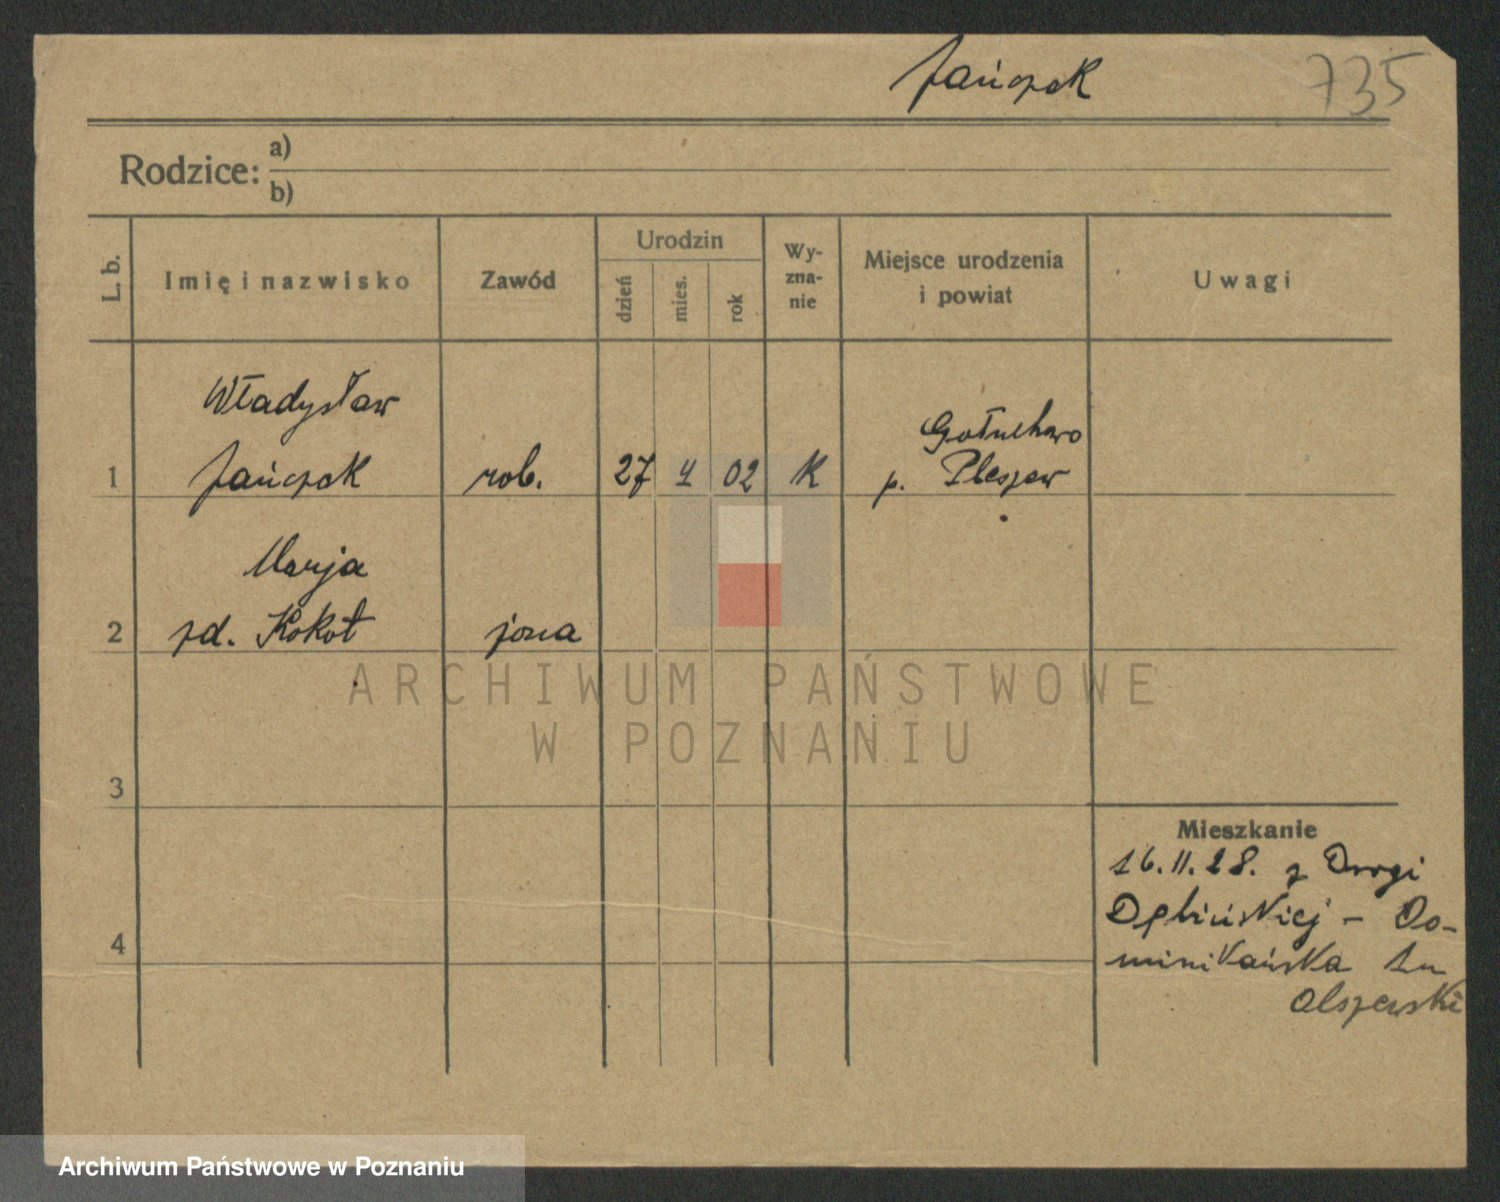 Jańczak 735
Rodzice: a)
b)
L. b. Imię i nazwisko Zawód Urodzin dzień mies. rok Wy-zna-nie Miejsce urodzenia i powiat Uwagi
Władysław
Gołuchowo
1 Jańczak rob. 27 4 02 K p. Pleszew
Marja
2 zd. Kokot żona
ARCHIWUM PAŃSTWOWE
W POZNANIU
3
Mieszkanie
16.II.28. z Drogi
Dębińskiej – Do-
4
minikańska
Olszewski
Archiwum Państwowe w Poznaniu